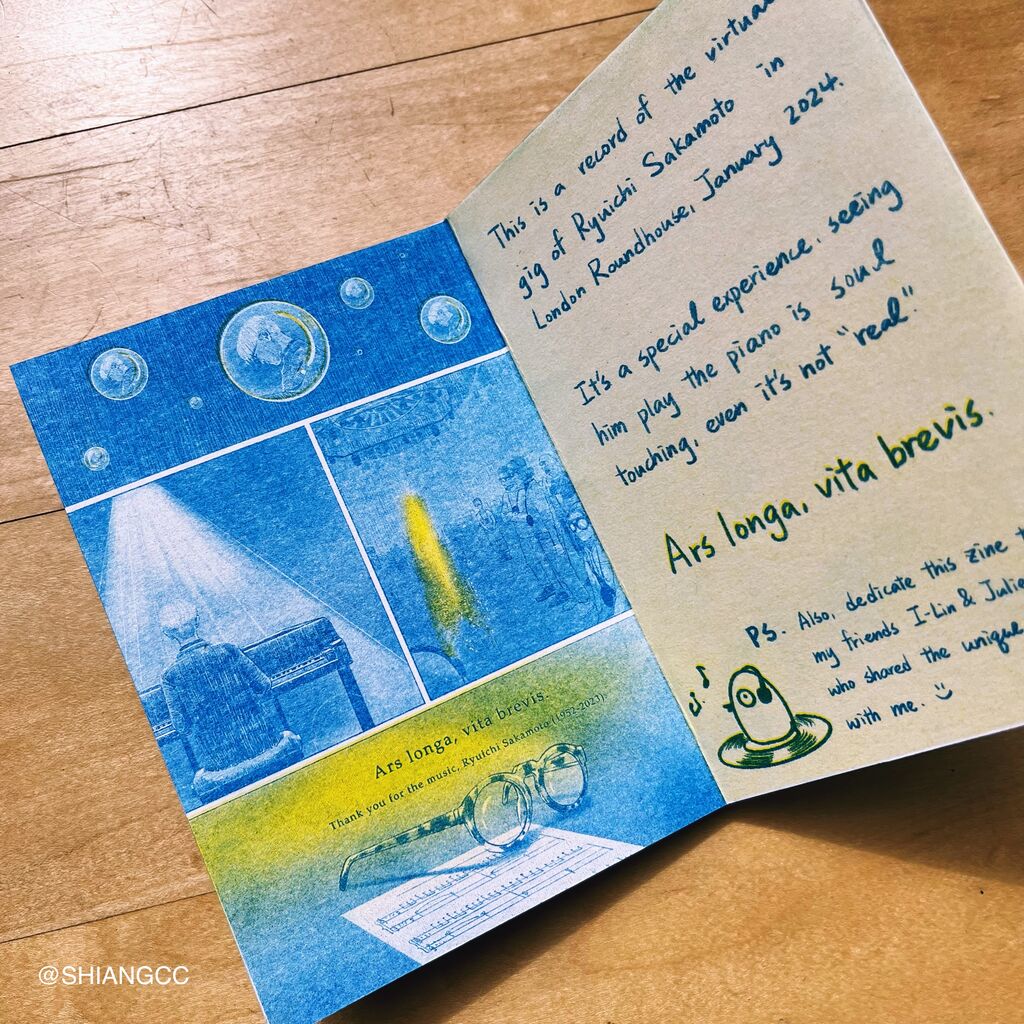 Ars longa, vita brevis.
Thank you for the music, Ryuichi Sakamoto (1952-2023).
This is a record of the virtual
gig of Ryuichi Sakamoto in
London Roundhouse, January 2024.
It's a special experience, seeing
him play the piano is soul
touching, even it's not "real".
Ars longa, vita brevis.
PS. Also, dedicate this zine
my friends I-Lin & Julie
who shared the unique
with me.
@SHIANGCC